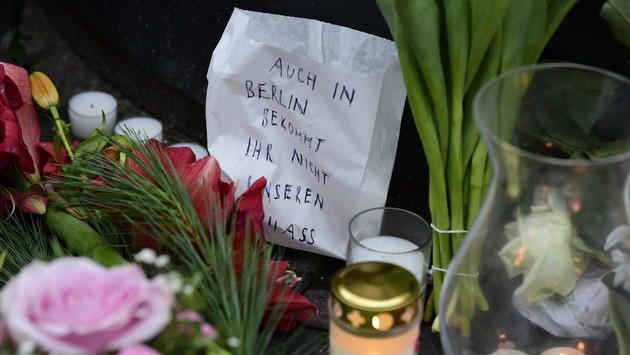 AUCH IN
BERLIN
BEKOMMT
IHR NICHT
UNSEREN
HASS